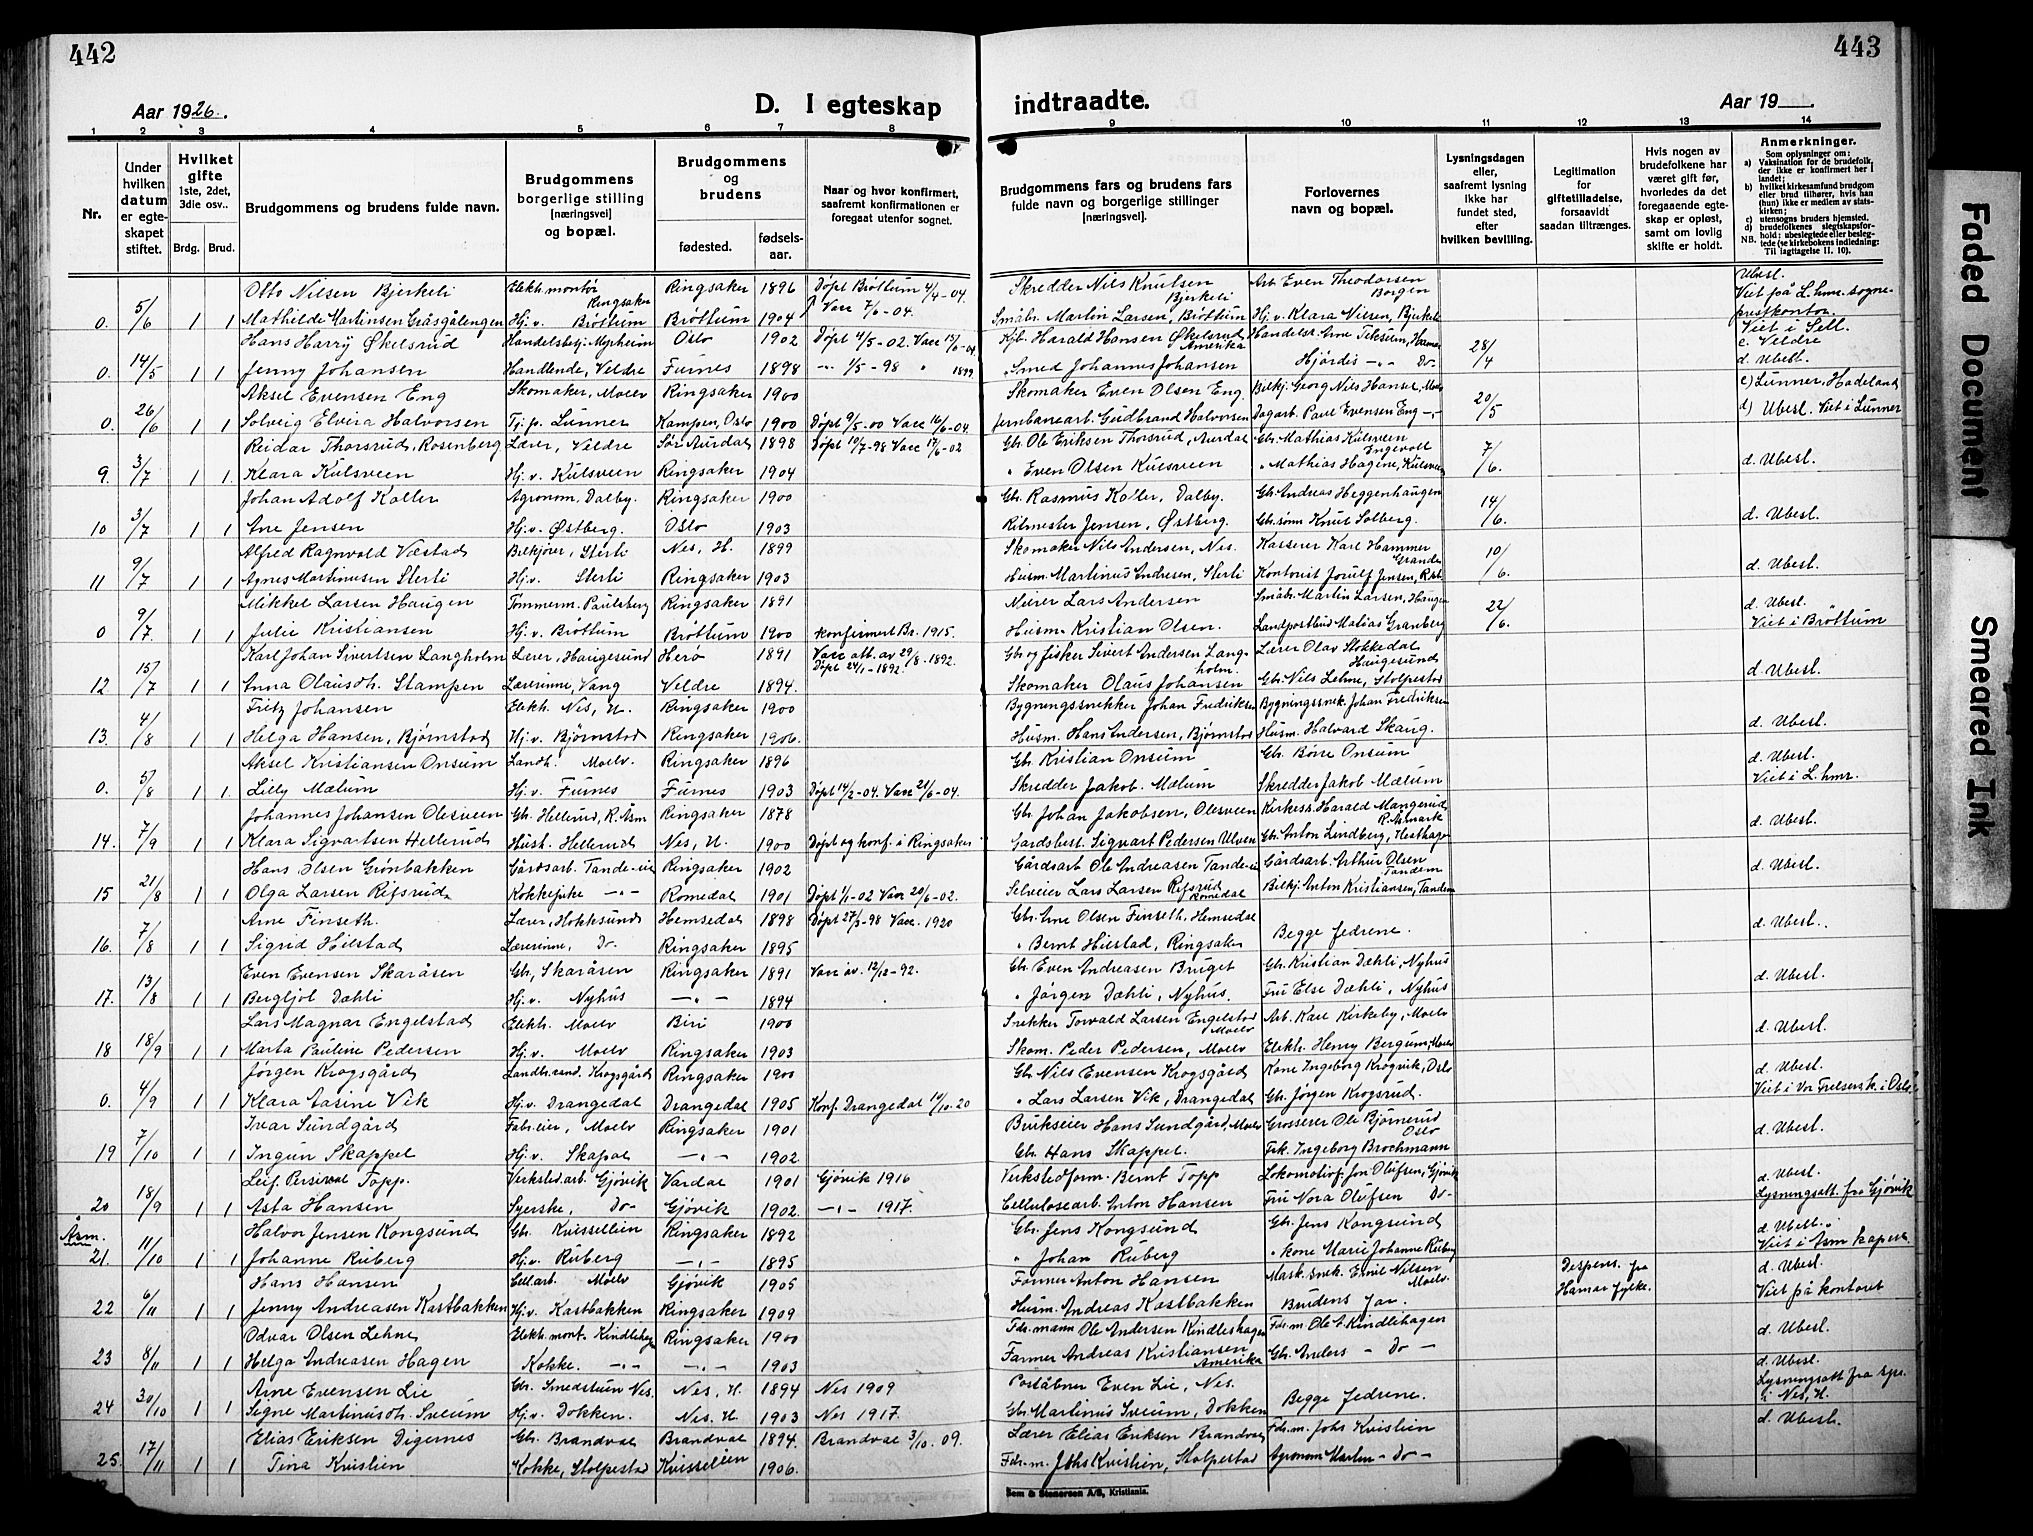 442
443
Faded Document
Smeared Ink
Aar 1926.
D. I egteskap
indtraadte.
Aar 19
1 2 3 4 5 6 7 8 9 10 11 12 13 14
Nr.
Under hvilken datum er egteskapet stiftet.
Hvilket gifte 1ste, 2det, 3die osv..
Brdg. Brud.
Brudgommens og brudens fulde navn.
Brudgommens borgerlige stilling [næringsvei] og bopæl.
Brudgommens og brudens
fødested. fødselsaar.
Naar og hvor konfirmert, saafremt konfirmationen er foregaat utenfor sognet.
Brudgommens fars og brudens fars fulde navn og borgerlige stillinger [næringsvei].
Forlovernes navn og bopæl.
Lysningsdagen eller, saafremt lysning ikke har fundet sted, efter hvilken bevilling.
Legitimation for giftetilladelse, forsaavidt saadan tiltrænges.
Hvis nogen av brudefolkene har været gift før, hvorledes da det foregaaende egteskap er opløst, samt om lovlig skifte er holdt.
Anmerkninger.
Som oplysninger om:
a) Vaksination for de brudefolk, der ikke er konfirmert her i landet;
b) hvilket kirkesamfund brudgom eller brud tilhører, hvis han (hun) ikke er medlem av statskirken;
c) utensogns bruders hjemsted.
d) brudefolkenes slegtskapsforhold: ubeslegtede eller beslegtede (se kirkebokens indledning:
NB. Til iagttagelse II. 10).
Otto Nilsen Bjerkeli Elekh. montør Ringsaker Ringsaker 1896 Døpt Brøttum 4/4-04. Skredder Nils Knutsen Bjerkeli Arb. Even Theodorsen Borgen Ubesl.
0. 5/6 1 1 Mathilde Martinsen Gråsgålengen Hj.v. Brøttum Brøttum 1904 Vacc 7/6-04. Småbr. Martin Larsen, Brøttum Hj.v. Klara Nilsen, Bjerkeli Viet på L.hmr. sogneprestkontor.
Hans Harry Økelsrud Handelsbetj. Myrheim Oslo 1902 Døpt 4/5-02. Vacc 15/6-04 Kjb. Harald Hansen Økelsrud Amerika Handelsr. Arne Tekseum, Hamar 28/4 Viet i Sell. c. Veldre
0. 14/5 1 1 Jenny Johansen Handlende, Veldre Furnes 1898 -"- 1/5-98 " 1899 Smed Johannes Johansen Hjørdis -"- Do- d. Ubesl.
Aksel Evensen Eng Skomaker, Moelv Ringsaker 1900 Skomaker Even Olsen Eng. Bilkj. Georg Nils Hansen, Moelv 20/5 c) Lunner, Hadeland
0. 26/6 1 1 Solveig Elvira Halvorsen Tj.p. Lunner Kampen, Oslo 1900 Døpt 9/5-00 Vacc 16/6-04. Jernbanearb. Gudbrand Halvorsen Dagarb. Paul Evensen Eng -"- d) Ubesl. Viet i Lunner
Reidar Thorsrud, Rosenberg Lærer, Veldre Sør Aurdal 1898 Døpt 10/7-98 Vacc 17/6-02 Gb. Ole Eriksen Thorsrud, Aurdal Gb. Mathias Kulsveen Engevoll 7/6.
9. 3/7 1 1 Klara Kulsveen Hj.v. Kulsveen Ringsaker 1904 " Even Olsen Kulsveen " Mathias Hagene, Kulsveen d. Ubesl.
Johan Adolf Koller Agronom, Dalby. Ringsaker 1900 Gb. Rasmus Koller, Dalby. Gb. Andreas Heggenhaugen 14/6.
10 3/7 1 1 Ane Jensen Hj.v. Østberg. Oslo 1903 Ritmester Jensen, Østberg. Gb.sønn Knut Solberg. d. Ubesl.
Alfred Ragnvald Væstad Bilkjører, Sterli Nes, H. 1899 Skomaker Nils Andersen, Nes. Kasserer Karl Hammer Granden 10/6.
11 9/7 1 1 Agnes Martinusen Sterli Hj.v. Sterli Ringsaker 1903 Husm. Martinus Andresen, Sterli Kontorist Jorulf Jensen, d. Ubesl.
Mikkel Larsen Haugen Tommerm. Paulsberg Ringsaker 1891 Meier Lars Andersen Småbr. Martin Larsen, Haugen 22/6. d. Ubesl.
0 9/7. 1 1 Julie Kristiansen Hj.v. Brøttum Brøttum 1900 Konfirmert Br. 1915. Husm. Kristian Olsen. Landpostbud Matias Granberg Viet i Brøttum
Karl Johan Sivertsen Langholm Lærer, Haugesund Herø 1891 Vacc. att. av 29/8. 1892. Døpt 24/1-1892. Gb og fisker Sivert Andersen Langholm. Lærer Olav Stokkedal Haugesund
12 15/7 1 1 Anna Olausdh. Stampen Lærerinne, Vang Veldre 1894. Skomaker Olaus Johansen Gb. Nils Lehne, Stolpestad d. Ubesl.
Fritz Johansen Elekh. Nes, H. Ringsaker 1900 Bygningssnekker Johan Fredriksen Bygningssnek. Johan Fredriksen
13. 4/8 1 1 Helga Hansen, Bjørnstad Hj.v. Bjørnstad Ringsaker 1906. Husm. Hans Andersen, Bjørnstad Husm. Halvard Skaug. d. Ubesl.
Aksel Kristiansen Onsum Landh. Moelv. Ringsaker 1896 Gb. Kristian Onsum Gb. Børre Onsum d. Ubesl.
0. 5/8 1 1. Lilly Mælum Hj.v. Furnes Furnes 1903 Døpt 14/2-04. Vacc 21/6-04. Skredder Jakob. Mælum Skredder Jakob Mælum Viet i L.hmr.
Johannes Johansen Olesveen Gb. Hellerud, R. Åsm Ringsaker 1878 Gb. Johan Jakobsen, Olesveen Kirkess. Harald Mangerud R. Åsmark
14. 7/9 1 1 Klara Sigvartsen Hellerud Husb. Hellerud Nes, H. 1900 Døpt og konf. i Ringsaker Gardsbest. Sigvart Pedersen Ulven Gb. Anton Lindberg, Hesthagen d. Ubesl.
Hans Olsen Grønbakken Gårdsarb. Tande-eie Ringsaker 1902 Gårdsarb. Ole Andreasen Tande-eie Gårdsarb. Arthur Olsen Tandem d. Ubesl.
15 21/8 1 1 Olga Larsen Rifsrud Kokkepike -"- Romedal 1901 Døpt 1/1-02 Vacc 20/6-02. Selveier Lars Larsen Rifsrud Romedal Bilkj. Anton Kristiansen, Tandem
Arne Finseth. Lærer, Hokksund Hemsedal 1898 Døpt 27/3-98 Vacc. 1920 Gb. Arne Olsen Finseth, Hemsedal
16. 7/8 1 1 Sigrid Hilstad Lærerinne, Do. Ringsaker 1895 " Bernt Hilstad, Ringsaker Begge fedrene. d. Ubesl.
Even Evensen Skaråsen Gb, Skaråsen Ringsaker 1891 Vacc av. 12/12-92. Gb. Even Andreasen Bruget Gb. Kristian Dæhli, Nyhus
17. 13/8 1 1 Bergljot Dæhli Hj.v. Nyhus -"- 1894 " Jørgen Dæhli, Nyhus. Fru Else Dæhli, Nyhus d. Ubesl.
Lars Magnar Engelstad Elekh. Moelv Biri 1900 Snekker Torvald Larsen Engelstad Moelv Arb. Karl Kirkeby, Moelv
18 18/9 1 1 Marta Pauline Pedersen Hj.v. Moelv Ringsaker 1903 Skom. Peder Pedersen, Moelv Elekh. Henry Bergum, Moelv d. Ubesl.
Jørgen Krogsgård Landbr.kand. Krogsgård Ringsaker 1900 Gb. Nils Evensen Krogsgård Kone Ingeborg Krogvik, Oslo d. Ubesl.
0. 4/9 1 1 Klara Aasine Vik Hj.v. Drangedal Drangedal 1905 Konf. Drangedal 14/10-20 " Lars Larsen Vik, Drangedal Gb. Jørgen Krogsrud. Viet i Vor Frelsers k. i Oslo
Ivar Sundgård Fabr.eier, Moelv Ringsaker 1901 Brukseier Hans Sundgård, Moelv Grosserer Ole Bjørnerud Oslo
19 7/10 1 1 Ingun Skappel Hj.v. Skapal -"- 1902 Gb. Hans Skappel. Frk. Ingeborg Brochmann d. Ubesl.
Leif Persival Topp. Verksted.arb. Gjøvik Vardal 1901 Gjøvik 1916 Verkstedform. Bernt Topp Lokomotivf. Jon Olufsen, Gjøvik d. Ubesl.
20 18/9 1 1 Asta Hansen Syerske, Do- Gjøvik 1902. -"- 1917. Cellulosearb. Anton Hansen Fru Nora Olufsen Do- Lysningsatt. fra Gjøvik
Åsm. Halvor Jensen Kongsund Gb. Kvisselien Ringsaker 1892 Gb. Jens Kongsund Gb. Jens Kongsund d. Ubesl.
21. 11/10 1 1 Johanne Ruberg Hj.v. Ruberg -"- 1895 " Johan Ruberg " kone Marie Johanne Ruberg Viet i Åsm kapell
Hans Hansen Cell.arb. Moelv Gjøvik 1905 Former Anton Hansen Mask.snek. Emil Nilsen Moelv. Dispens. fra Hamar fylke. d. Ubesl.
22 6/11 1 1 Jenny Andreasen Kastbakken Hj.v. Kastbakken Ringsaker 1909 Husm. Andreas Kastbakken Brudens far. Viet på kontoret
Odvar Olsen Lehne Elekh.mont. Kindlihagen Ringsaker 1900 Fdr.mann Ole Andersen Kindleshagen Fdr.m. Ole A. Kindlihagen
23 8/11 1 1 Helga Andreasen Hagen Kokke. -"- -"- 1903 Farmer Andreas Kristiansen Amerika Gb. Anders - Do - d. Ubesl.
Arne Evensen Lie Gb. Smedstuen Nes. Nes, H. 1894 Nes 1909 Poståbner Even Lie, Nes. d. Ubesl.
24 30/10 1 1 Signe Martinusdh. Sveum Hj.v. Dokken. Nes. H 1903 Nes 1917. Gb. Martinus Sveum, Dokken Begge fedrene. Lysningsatt fra spr. i Nes, H.
Elias Eriksen Digernes Gb. Brandval Brandval 1894. Brandval 3/10.09. Lærer Elias Eriksen Brandval Fdr.m. Johs Kvislien d. Ubesl.
25. 17/11 1 1 Tina Kvislien Kokke, Stolpestad Kvisselien 1906. Fdr.m. Johs Kvislien, Stolpestad Agronom Marten - Do -
Sem & Stenersen A/S, Kristiania.